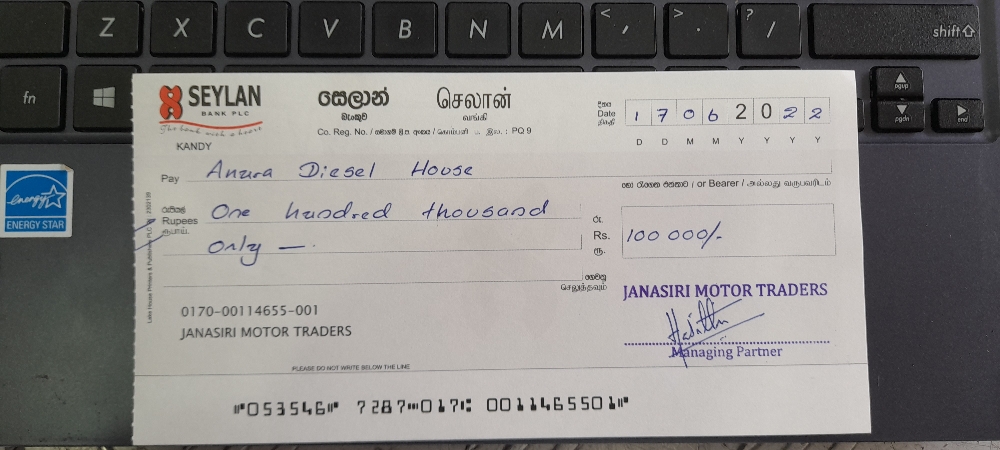 Z X C V B N M < , > . ? / shift
fn pgup pgdn end
energy
ENERGY STAR
SEYLAN
BANK PLC
The bank with a heart
සෙලාන්
බැංකුව
செலான்
வங்கி
Co. Reg. No. / : PQ 9
දිනය
Date
திகதி
1 7 0 6 2 0 2 2
D D M M Y Y Y Y
KANDY
Pay Anura Diesel House
or Bearer / அல்லது வருபவரிடம்
රුපියල්
Rupees
ரூபாய்
One hundred thousand
only —.
රු.
Rs.
ரூ.
100 000/-
ගෙවනු
செலுத்தவும்
JANASIRI MOTOR TRADERS
Managing Partner
0170-00114655-001
JANASIRI MOTOR TRADERS
PLEASE DO NOT WRITE BELOW THE LINE
⑈053546⑈ 7287⑉017⑆ 0011465501⑈